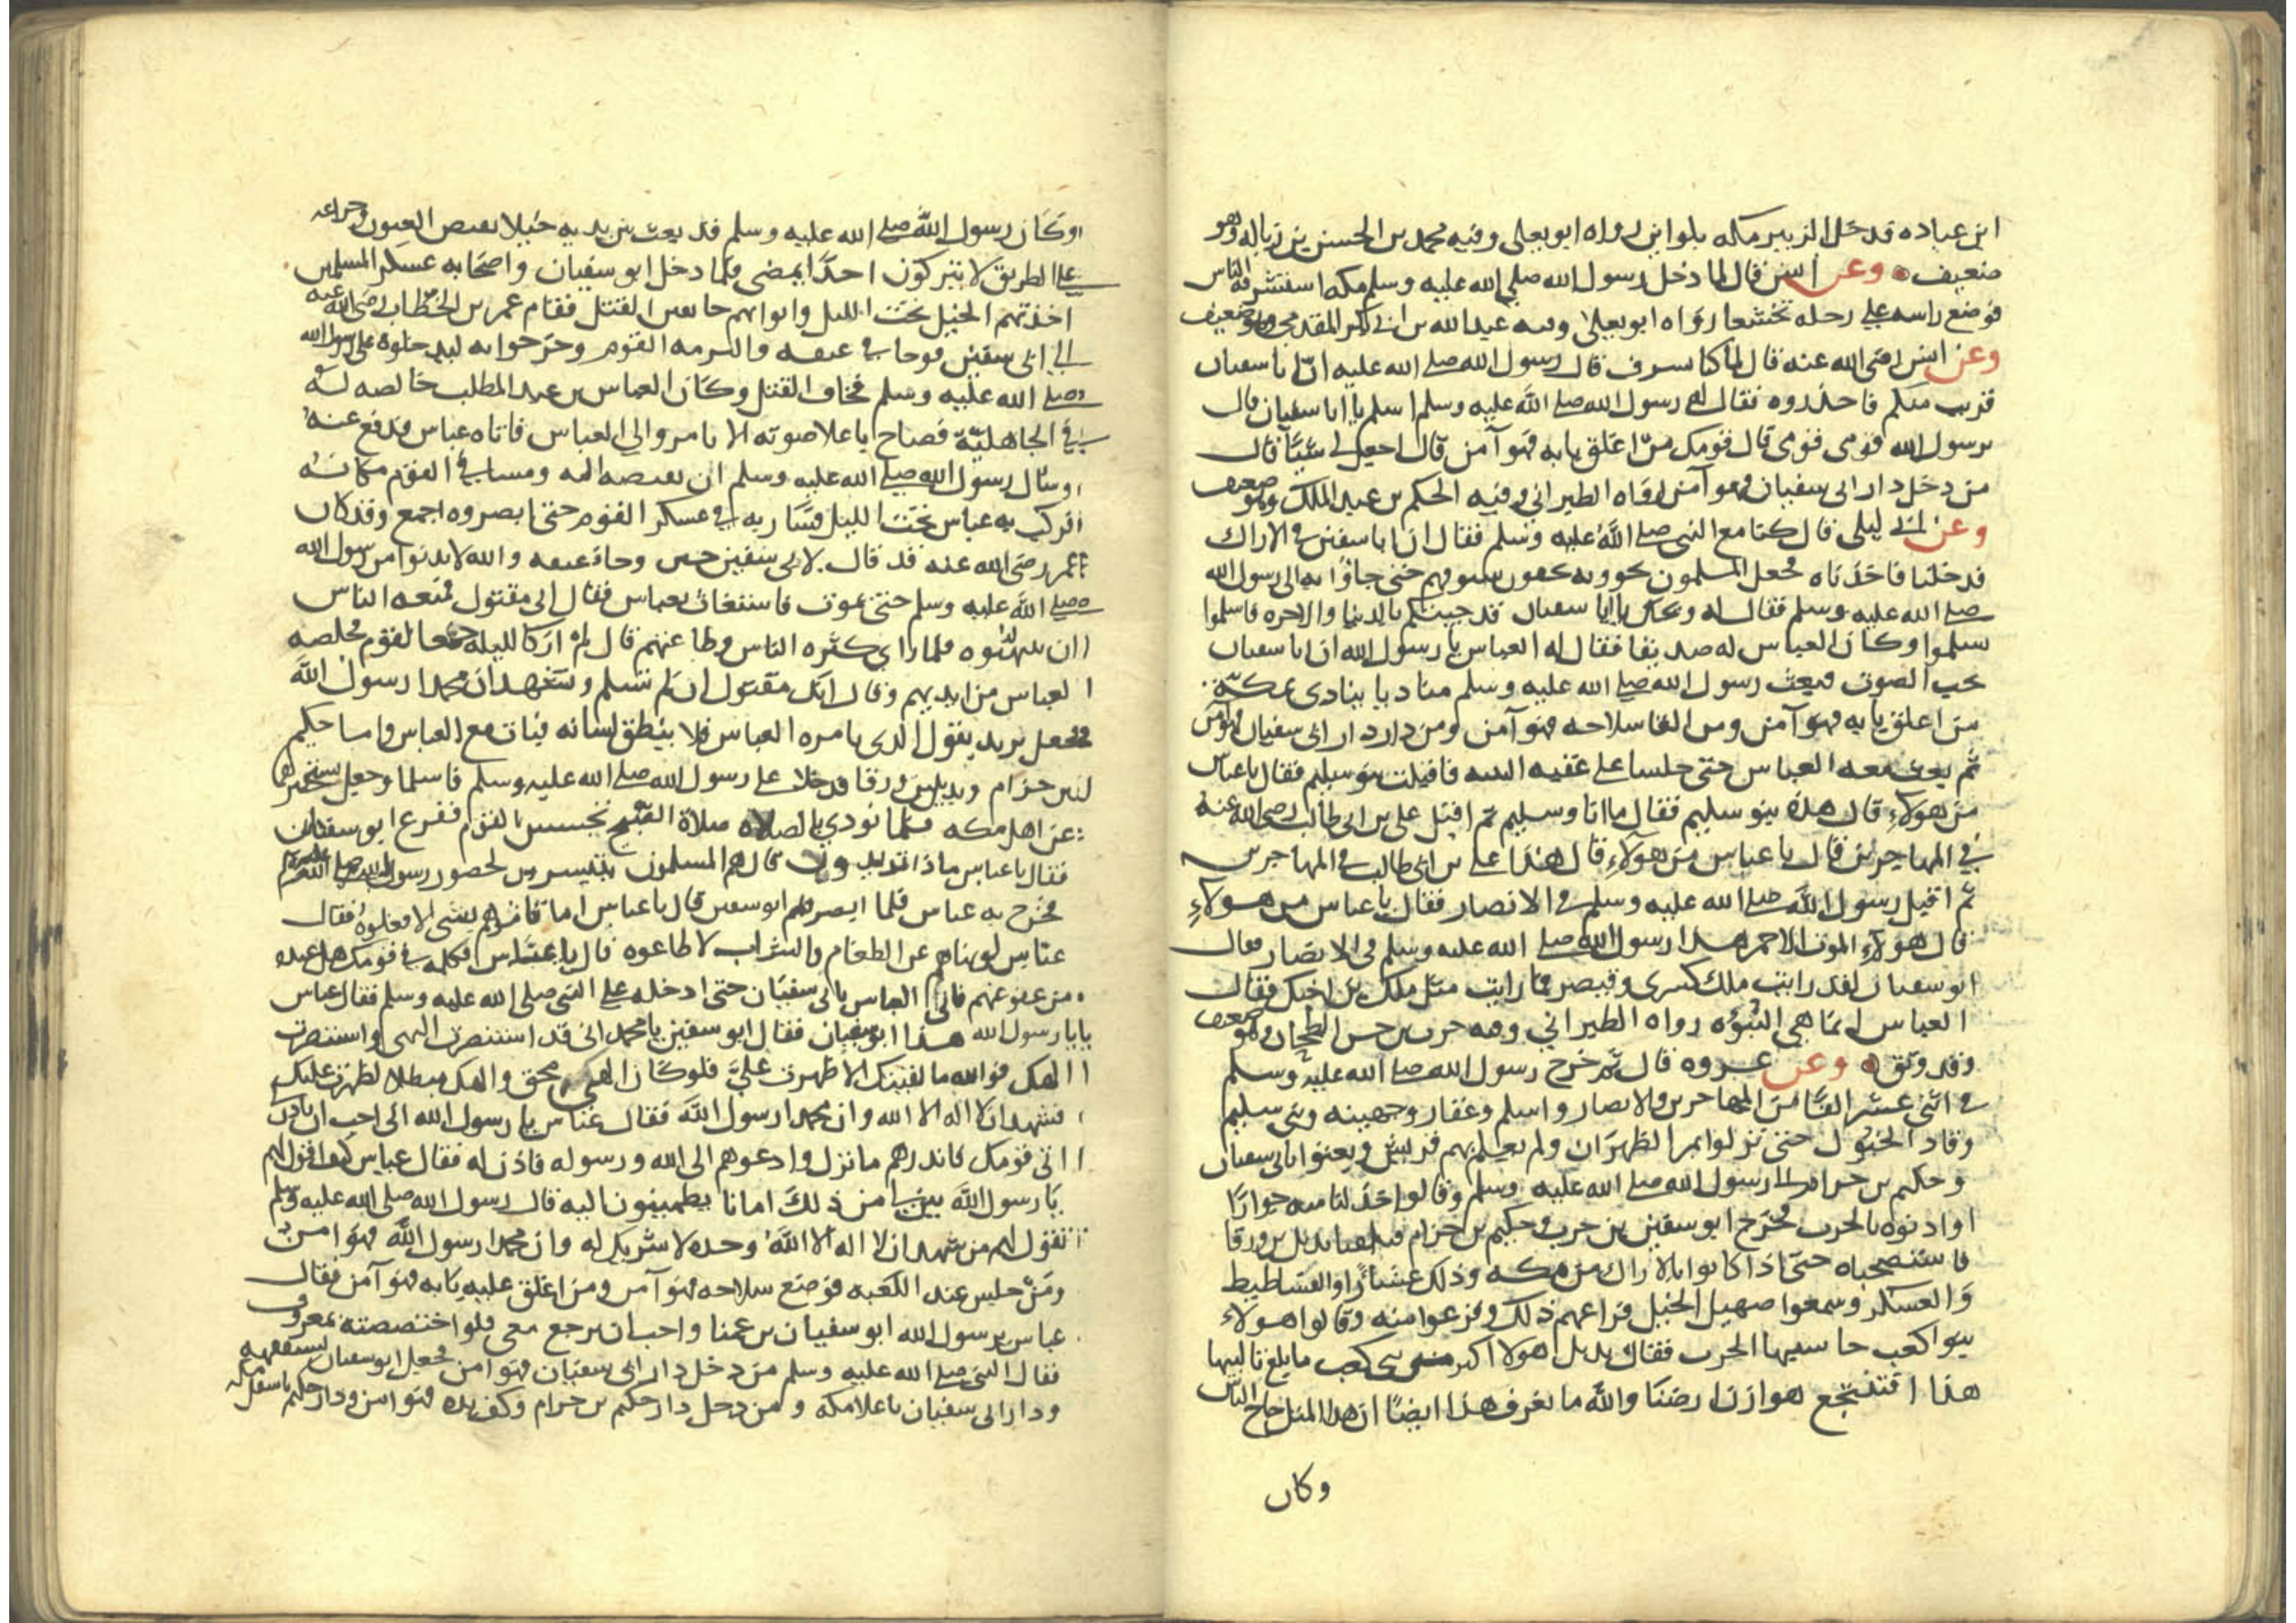 ابن عباده قدخل الزبير مكه بلواين رواه ابو يعلى وفيه محمد بن الحسن بن زباله وهو
ضعيف وعن انس قال لما دخل رسول الله صلى الله عليه وسلم مكه استشرفه الناس
فوضع راسه على رحله تخشعا رواه ابو يعلى وفيه عبد الله بن ابى بكر المقدمى وهو ضعيف
وعن انس رضى الله عنه قال لما كنا بسرف قال رسول الله صلى الله عليه ان ابا سفيان
قريب منكم فاحذروه فقال له رسول الله صلى الله عليه وسلم اسلم يا ابا سفيان قال
يرسول الله قومى قومى قال قومك من اغلق بابه فهو آمن قال اجعل لى شيئا قال
من دخل دار ابى سفيان فهو آمن رواه الطبرانى وفيه الحكم بن عبد الملك وهو ضعيف
وعن ابى ليلى قال كنا مع النبى صلى الله عليه وسلم فقال ان ابا سفين فى الاراك
فدخلنا فاخذناه فجعل المسلمون يحوونه بجفون سيوفهم حتى جاؤا به الى رسول الله
صلى الله عليه وسلم فقال له ويحك يا ابا سفيان قد جيتكم بالدنيا والاخره فاسلموا
تسلموا وكان العباس له صديقا فقال له العباس يا رسول الله ان ابا سفيان
يحب الصوت فبعث رسول الله صلى الله عليه وسلم مناديا ينادى بمكة
من اغلق بابه فهو آمن ومن القا سلاحه فهو آمن ومن دخل دار ابى سفيان فهو آمن
ثم بعث معه العباس حتى جلسا على عقبه الثنيه فاقبلت بنو سليم فقال يا عباس
من هولاءِ قال هذه بنو سليم فقال ما انا وسليم ثم اقبل على بن ابى طالب رضى الله عنه
فى المهاجرين قال يا عباس من هولاءِ قال هذا على بن ابى طالب فى المهاجرين
ثم اقبل رسول الله صلى الله عليه وسلم فى الانصار فقال يا عباس من هولاءِ
قال هولاءِ الموت الاحمر هذا رسول الله صلى الله عليه وسلم فى الانصار فقال
ابو سفيان لقد رايت ملك كسرى وقيصر فما رايت مثل ملك بن اخيك فقال
العباس انما هى النبوه رواه الطبرانى وفيه حرب بن حسن الطحان وهو ضعيف
وقد وثق وعن عروه قال ثم خرج رسول الله صلى الله عليه وسلم
فى اثنى عشر الفا من المهاجرين والانصار واسلم وغفار وجهينه وبنى سليم
وقاد الخيول حتى نزلوا بمر الظهران ولم يعلم بهم قريش وبعثوا بابى سفيان
وحكيم بن حزام الى رسول الله صلى الله عليه وسلم وقالوا خذ لنا منه جوارا
او اذنوه بالحرب فخرج ابو سفين بن حرب وحكيم بن حزام فلقيا بديل بن ورقا
فاستصحباه حتى اذا كانوا بالاراك من مكه وذلك عشاء راوا الفساطيط
والعسكر وسمعوا صهيل الخيل فراعهم ذلك وفزعوا منه وقالوا هولاء
بنوا كعب حاسيها الحرب فقال بديل هولا اكبر من بنى كعب ما بلغ تاليبها
هذا افتنتجع هوازن ارضنا والله ما نعرف هذا ايضا ان هذا المثل حاج الناس
وكان
وكان رسول الله صلى الله عليه وسلم قد بعث بين يديه خيلا تقبص العيون وخزاعه
على الطريق لا يتركون احدا يمضى فلما دخل ابو سفيان واصحابه عسكر المسلمين
اخذتهم الخيل تحت الليل واتوا بهم خايفين القتل فقام عمر بن الخطاب رضى الله عنه
الى ابى سفين فوجا فى عنقه والتزمه القوم وخرجوا به ليدخلوه على رسول الله
صلى الله عليه وسلم فخاف القتل وكان العباس بن عبد المطلب خالصه له
فى الجاهلية فصاح باعلا صوته الا تامروا لى العباس فاتاه عباس فدفع عنه
وسال رسول الله صلى الله عليه وسلم ان يقبضه اليه ومشا فى القوم مكانه
فركب به عباس تحت الليل فسار به فى عسكر القوم حتى ابصروه اجمع وقد كان
عمر رضى الله عنه قد قال لابى سفين حين وجا فى عنقه والله لا تدنوا من رسول الله
صلى الله عليه وسلم حتى تموت فاستغاث بعباس فقال انى مقتول فمنعه الناس
ان ينتهبوه فلما راى كثره الناس وطاعتهم قال لم ار كالليلة جمعا لقوم فخلصه
العباس من ايديهم وقال انك مقتول ان لم تسلم وتشهد ان محمدا رسول الله
فجعل يريد يقول الذى يامره العباس فلا ينطق لسانه فبات مع العباس واما حكيم
بن حزام وبديل بن ورقا فدخلا على رسول الله صلى الله عليه وسلم فاسلما وجعل يستخبرهما
عن اهل مكه فلما نودى بالصلاه صلاة الصبح تحسس القوم ففزع ابو سفيان
فقال يا عباس ماذا تريدون قال هم المسلمون يتيسرون لحضور رسول الله صلى الله عليه وسلم
فخرج به عباس فلما ابصرهم ابو سفين قال يا عباس اما تامرهم بشى الا فعلوه فقال
عباس لو نهاهم عن الطعام والشراب لاطاعوه قال يا عباس فكلمه فى قومك هل عنده
من عفو عنهم فاتى العباس بابى سفيان حتى ادخله على النبى صلى الله عليه وسلم فقال عباس
يا رسول الله هذا ابو سفيان فقال ابو سفين يا محمد انى قد استنصرت الهى واستنصرت
الهك فوالله ما لقيتك الا ظهرت على فلو كان الهى محق والهك مبطلا لظهرت عليك
فشهد ان لا اله الا الله وان محمدا رسول الله فقال عباس يا رسول الله انى احب ان تاذن لى
اتى قومك فانذرهم ما نزل وادعوهم الى الله ورسوله فاذن له فقال عباس كيف اقول لهم
يا رسول الله بين لى من ذلك امانا يطمينون اليه قال رسول الله صلى الله عليه وسلم
تقول لهم من شهد ان لا اله الا الله وحده لا شريك له وان محمدا رسول الله فهو امن
ومن جلس عند الكعبه فوضع سلاحه فهو آمن ومن اغلق عليه بابه فهو آمن فقال
عباس يرسول الله ابو سفيان بن عمنا واحب ان يرجع معى فلو اختصصته بمعروف
فقال النبى صلى الله عليه وسلم من دخل دار ابى سفيان فهو امن فجعل ابو سفيان يستفهمه
ودار ابى سفيان باعلا مكه ومن دخل دار حكيم بن حزام وكف يده فهو امن ودار حكيم باسفل مكه